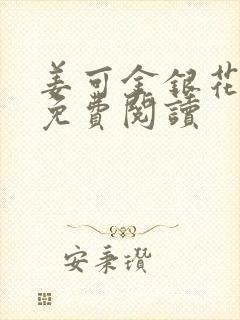 姜可金銀花
免費閱讀
安秉瓚